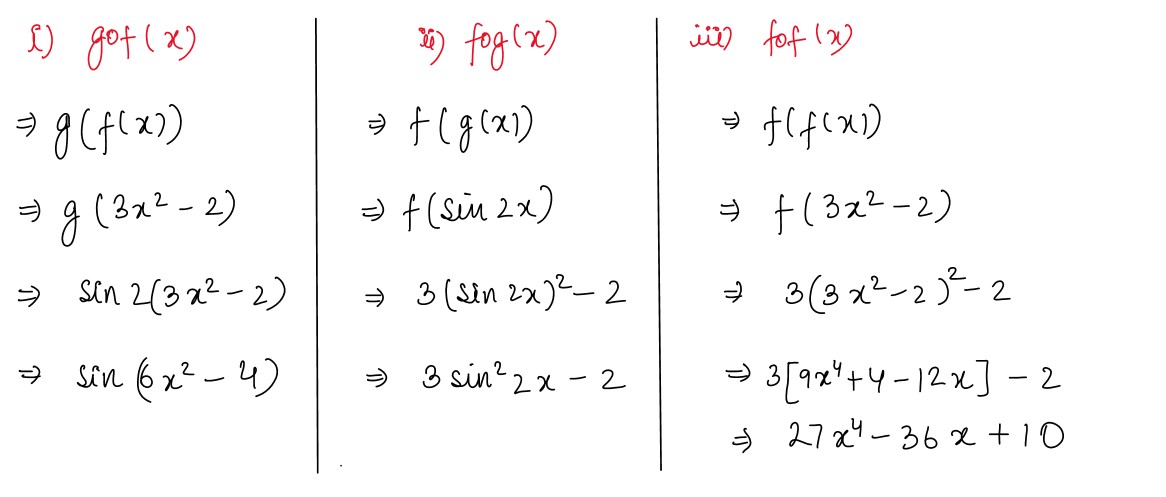 i) gof(x)
⇒ g(f(x))
⇒ g(3x² - 2)
⇒ sin 2(3x² - 2)
⇒ sin (6x² - 4)
ii) fog(x)
⇒ f(g(x))
⇒ f(sin 2x)
⇒ 3(sin 2x)² - 2
⇒ 3 sin² 2x - 2
iii) fof(x)
⇒ f(f(x))
⇒ f(3x² - 2)
⇒ 3(3x² - 2)² - 2
⇒ 3[9x⁴ + 4 - 12x] - 2
⇒ 27x⁴ - 36x + 10